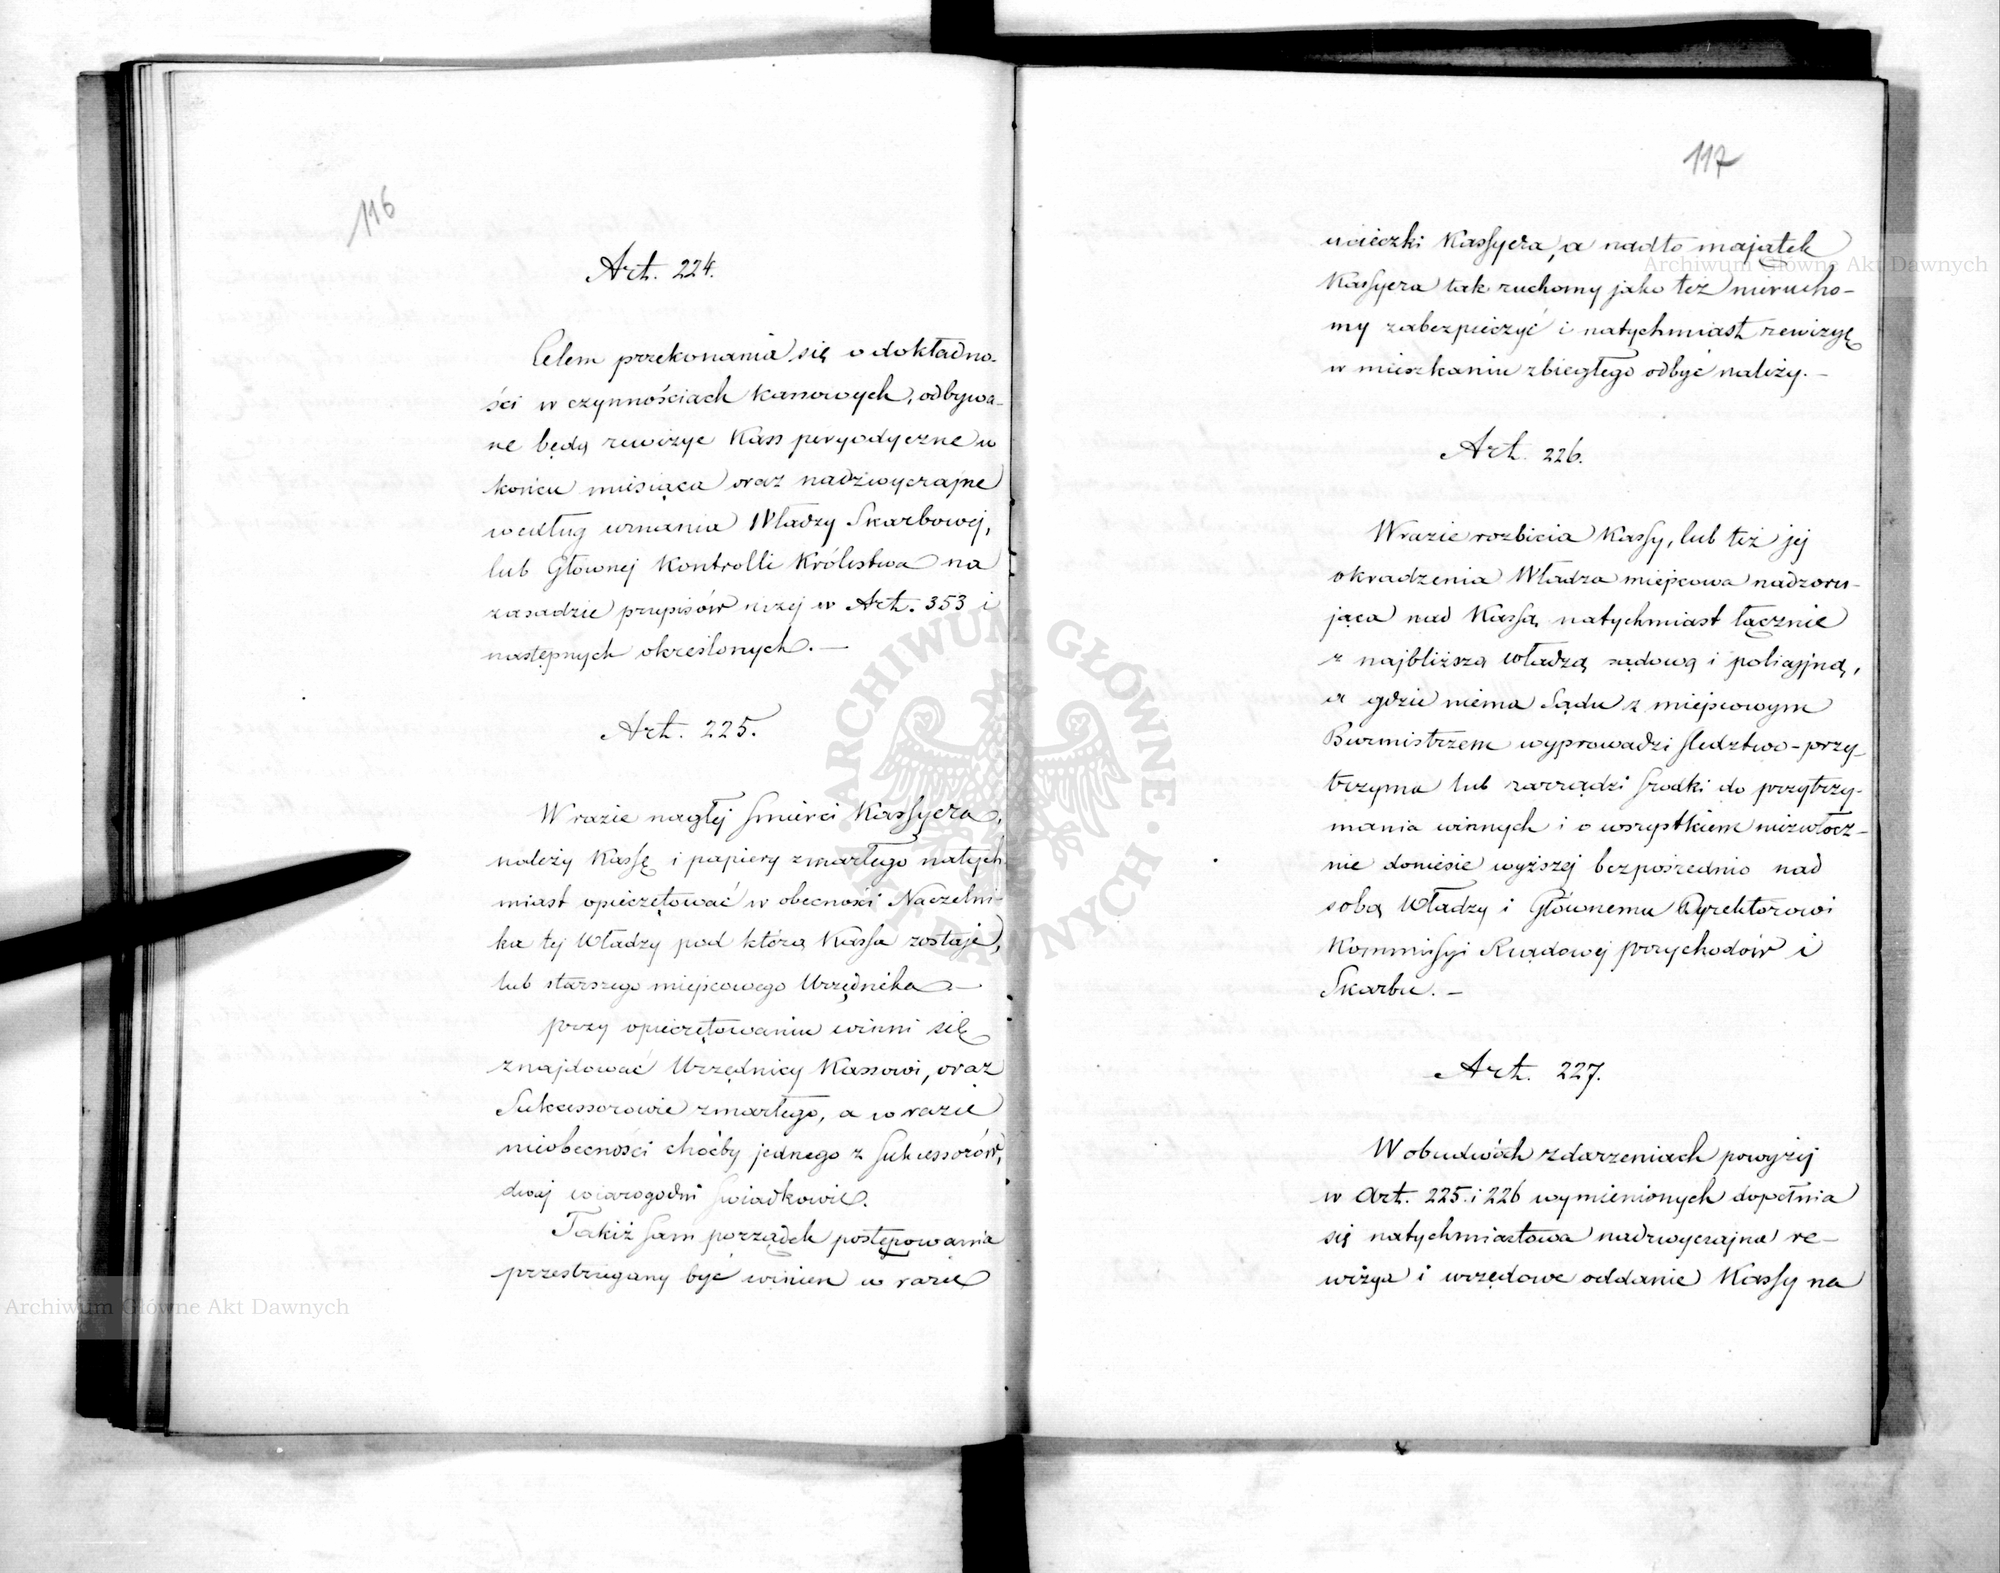 116
Art. 224.
Celem przekonania się o dokładno-
ści w czynnościach kassowych, odbywa-
ne będą rewizye Kass peryodyczne w
końcu miesiąca oraz nadzwyczajne
według uznania Władzy Skarbowej,
lub Głównej Kontrolli Królestwa na
zasadzie przepisów niżej w Art. 353 i
następnych określonych. —
Art. 225.
W razie nagłej śmierci Kassyera,
należy Kassę i papiery zmarłego natych
miast opieczętować w obecności Naczelni-
ka tej Władzy pod którą Kassa zostaje,
lub starszego miejscowego Urzędnika —
przy opieczętowaniu winni się
znajdować Urzędnicy Kassowi, oraz
Sukcessorowie zmarłego, a w razie
nieobecności choćby jednego z Sukcessorów,
dwaj wiarogodni świadkowie.
Takiż sam porządek postępowania
przestrzegany być winien w razie
117
ucieczki Kassyera, a nadto majątek
Kassyera tak ruchomy jako też nierucho-
my zabezpieczyć i natychmiast rewizyę
w mieszkaniu zbiegłego odbyć należy. —
Art. 226.
W razie rozbicia Kassy, lub też jej
okradzenia Władza miejscowa nadzoru-
jąca nad Kassą, natychmiast łącznie
z najbliższą władzą sądową i policyjną,
a gdzie niema Sądu z miejscowym
Burmistrzem wyprowadzi śledztwo - przy-
trzyma lub zarządzi środki do przytrzy-
mania winnych i o wszystkiem niezwłocz-
nie doniesie wyższej bezpośrednio nad
sobą Władzy i Głównemu Dyrektorowi
Kommissyi Rządowej przychodów i
Skarbu. —
Art. 227.
W obudwóch zdarzeniach powyżej
w Art. 225. i 226 wymienionych dopełnia
się natychmiastowa nadzwyczajna re-
wizya i urzędowe oddanie Kassy na
ARCHIWUM GŁÓWNE AKT DAWNYCH
Archiwum Główne Akt Dawnych
Archiwum Główne Akt Dawnych